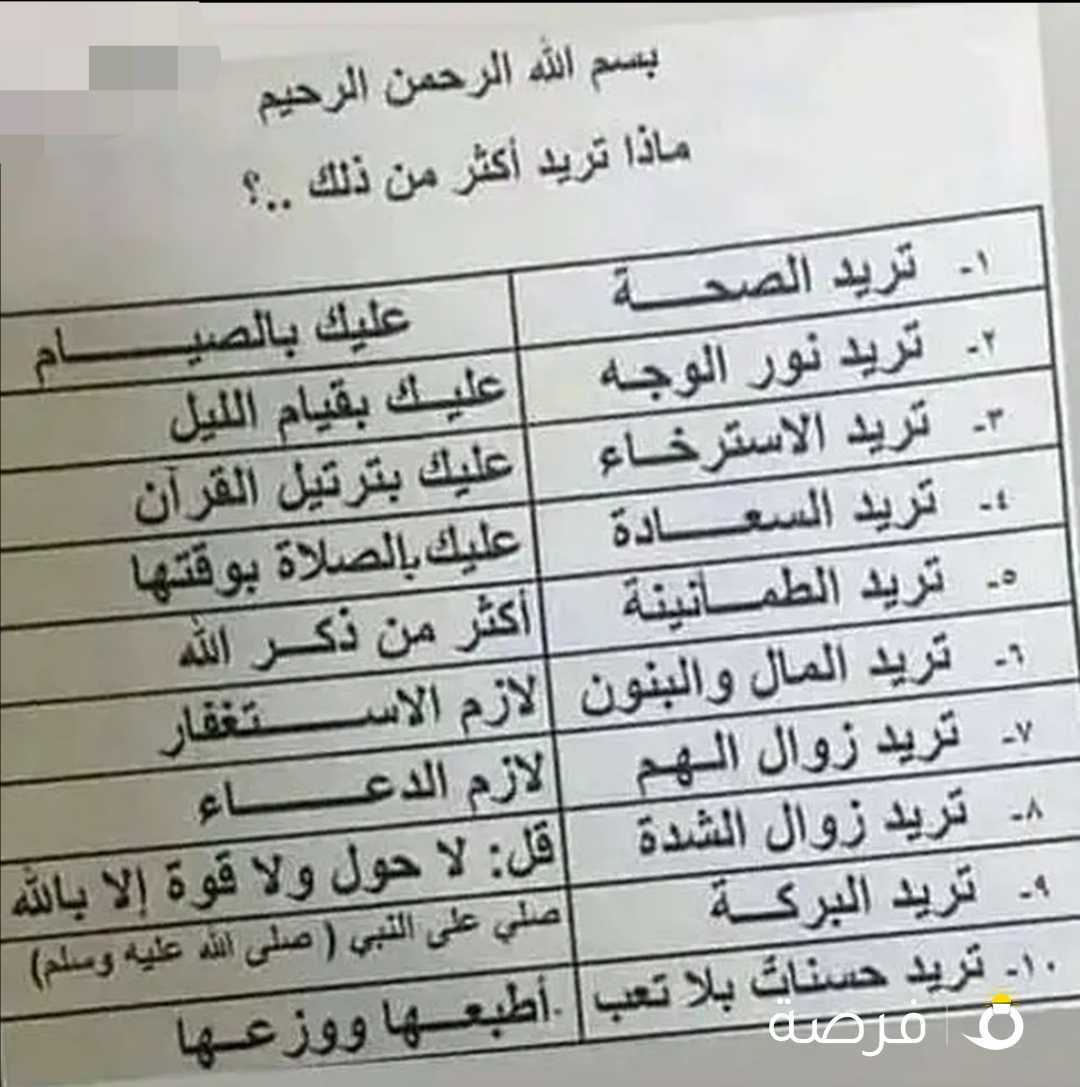 بسم الله الرحمن الرحيم
ماذا تريد أكثر من ذلك ..؟
١- تريد الصحة عليك بالصيام
٢- تريد نور الوجه عليك بقيام الليل
٣- تريد الاسترخاء عليك بترتيل القرآن
٤- تريد السعادة عليك بالصلاة بوقتها
٥- تريد الطمانينة أكثر من ذكر الله
٦- تريد المال والبنون لازم الاستغفار
٧- تريد زوال الهم لازم الدعاء
٨- تريد زوال الشدة قل: لا حول ولا قوة إلا بالله
٩- تريد البركة صلي على النبي ( صلى الله عليه وسلم)
١٠- تريد حسنات بلا تعب أطبعها ووزعها
فرصة